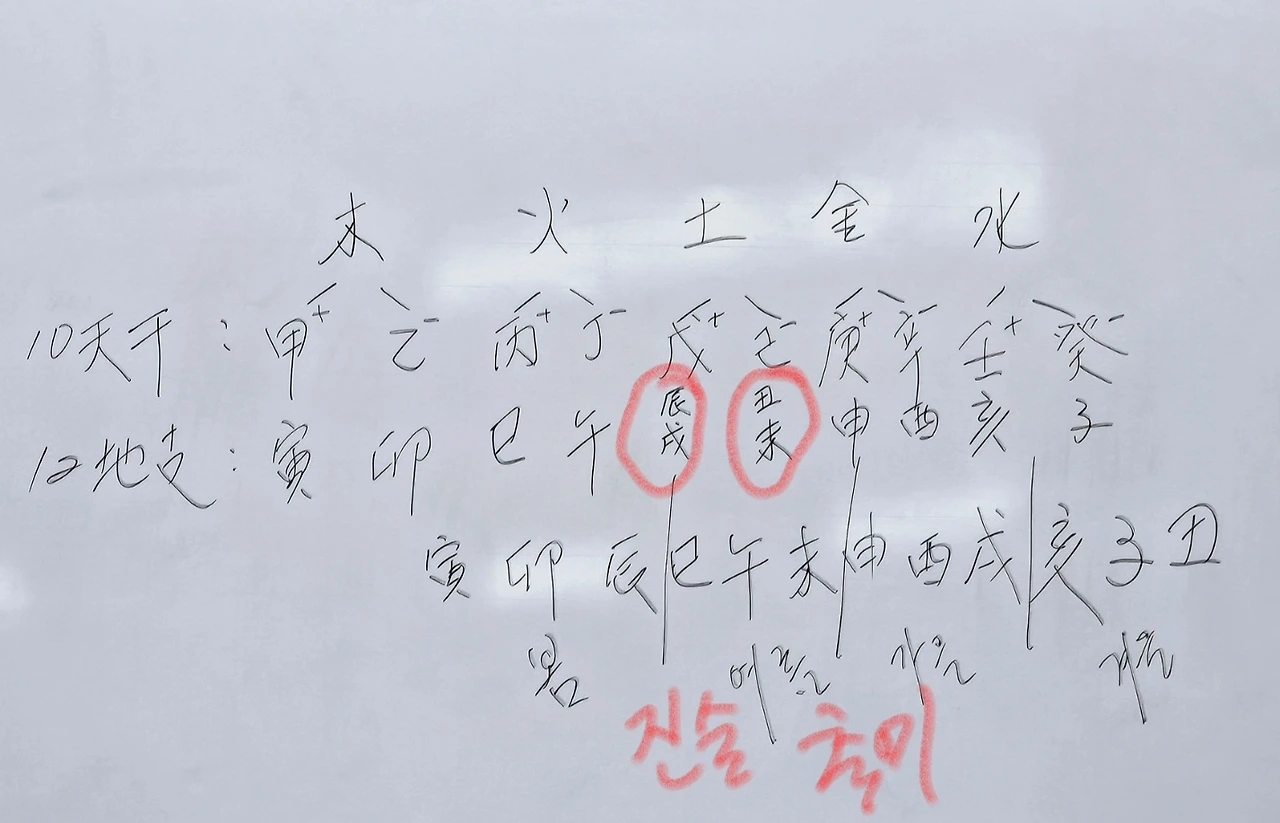 木 火 土 金 水
10天干 : 甲+ 乙- 丙+ 丁- 戊+ 己- 庚+ 辛- 壬+ 癸-
12地支 : 寅 卯 巳 午 辰戌 丑未 申 酉 亥 子
寅 卯 辰 巳 午 未 申 酉 戌 亥 子 丑
봄 여름 가을 겨울
진술 축미